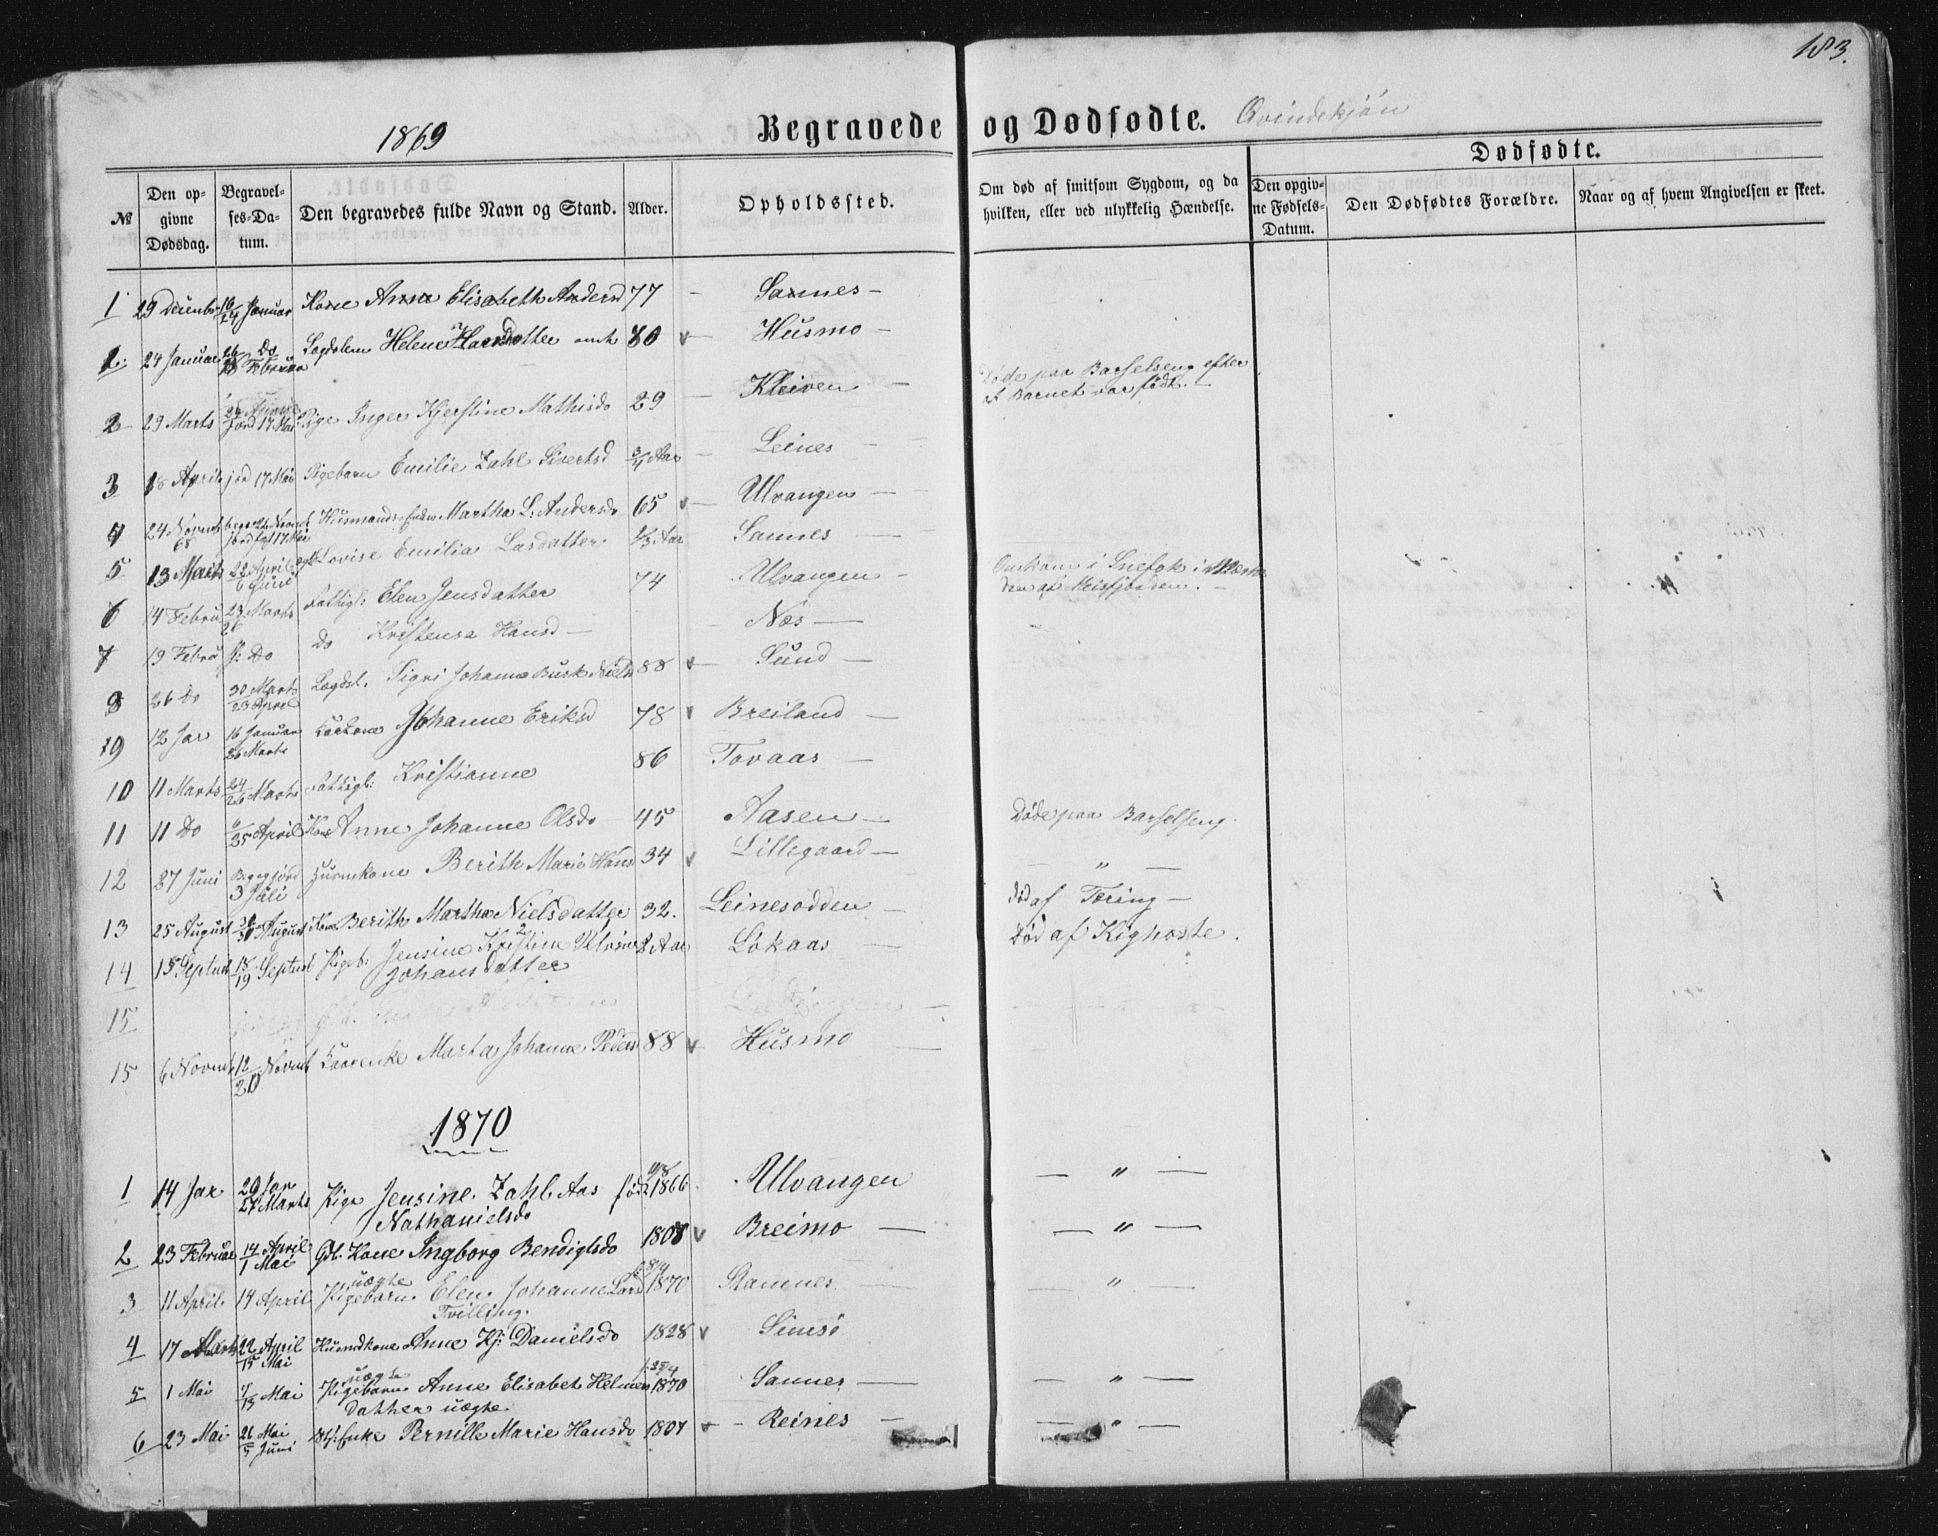 183.
1869 Begravede og Dødfødte. Qvindekjøn
Dødfødte.
№ Den opgivne Dødsdag. Begravelses-Datum. Den begravedes fulde Navn og Stand. Alder. Opholdssted. Om død af smitsom Sygdom, og da hvilken, eller ved ulykkelig Hændelse. Den opgivne Fødsels-Datum. Den Dødfødtes Forældre. Naar og af hvem Angivelsen er skeet.
1 29 16/24 Januar Kone Anna Elisabeth Andersd 77 — Sannes —
1. 24 Januar 26 Do 18 Februar Helene Hansdatter 80 Husmo —
2 29 Marts 25 April jord 17 Mai Pige Inger Kjerstine Mathisd 29 — Kleiven — Døde paa Barselseng efter at Barnet var født. —
3 18 April jord 17 Mai Pigebarn Emilie Zahl Sivertsd 3/4 Aar — Leines — —
4 24 Martha L. Andersd 65 — Ulvangen — —
5 13 Marts 22 April 6 Juni Lovise Emilia Lasdatter 1/3 Aar Sannes —
6 14 Febru 23 Marts 26 Fattigl: Elen Jensdatter 74 Ulvangen — Omkom i Snefok i af Meisfjorden. —
7 19 Febru Do Do Kristensa Hansd — Næs —
8 26 Do 30 Marts 23 April Lægdsl. Sigri Johanna Busk Nielsd 88 — Sund —
9 12 Jar 16 Januar 26 Marts Johanne Eriksd 78 Breiland —
10 11 Marts 24/26 Marts Fattigl: Kristianne 86 Tovaas —
11 11 Do 6/25 April Kone Anne Johanne Olsdo 45 Aasen — Døde paa Barselseng.
12 27 Juni 3 Juli Berith Marie Hans 34 Lillegaard — — " —
13 25 August 30/31 August Kone Berith Martha Nielsdatter 32. Leinesodden — Død af Tæring —
14 15 Septmb 18/19 Septmb Pigeb. Jensine Kristine 2 Aar Lokaas — Død af Kighoste.
Johansdatter
15
15 6 Novmb 12/21 Novmb Marta Johanne Peders 88 — Husmo —
1870
1 14 Jar 20 Jar 27 Marts Pige Jensine Zahl Aas fød 11/8 1866. Ulvangen — " —
Nathanielsdo
2 23 Februar 14 April 1 Mai Kone Ingborg Bendigtsdo 1808 Breimo — — " —
3 11 April. 14 April uægte Pigebarn Elen Johanne Larsd 1870 Stamnes — — " —
Tvilling.
4 17 Marts 22 April 15 Mai Husmdkone Anne Kj: Danielsdo 1828
5 1 Mai 7/13 Mai uægte Pigebarn Anne Elisabet Helmer 1870 Sannes — — " —
datter uægte.
6 23 Mai 26 Mai 5 Juni Enke Pernille Marie Hansdo 1807 — Reines — — " —